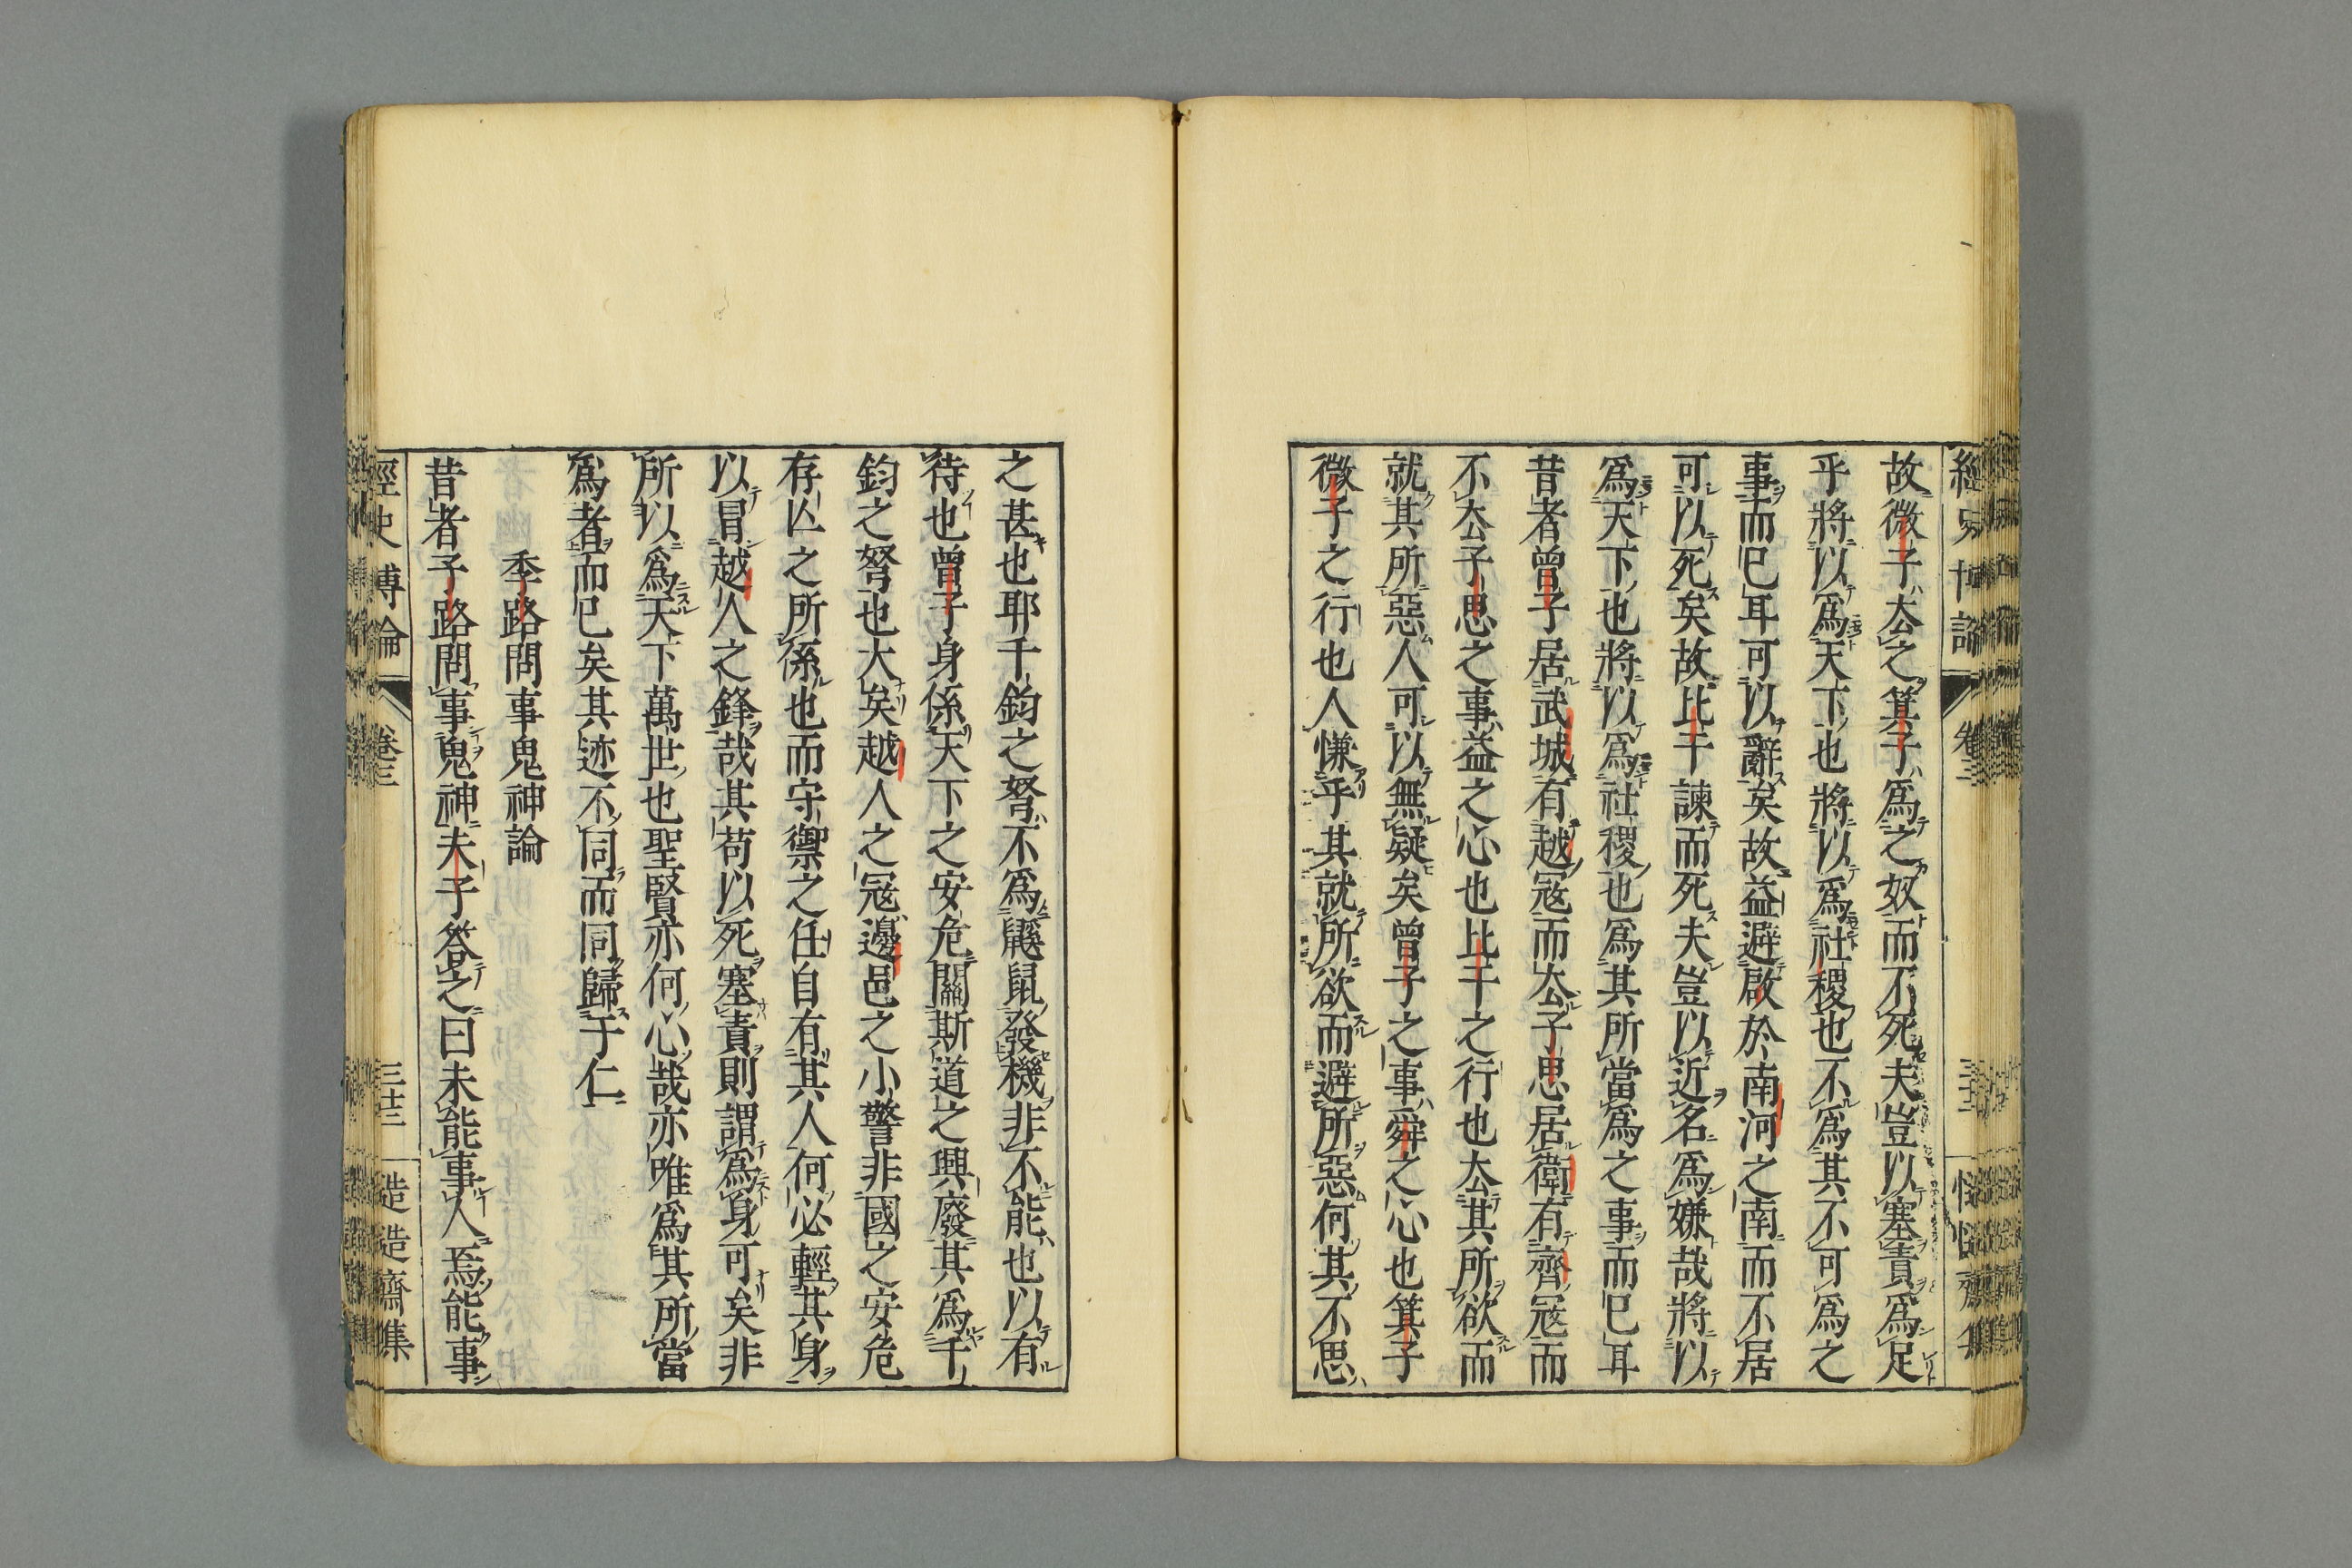 故微子去之箕子爲之奴而不死夫豈以塞責爲足
乎將以爲天下也將以爲社稷也不爲其不可爲之
事而已耳可以辭矣故益避啟於南河之南而不居
可以死矣故比干諫而死夫豈以近名爲嫌哉將以
爲天下也將以爲社稷也爲其所當爲之事而已耳
昔者曾子居武城有越寇而去子思居衛有齊寇而
不去子思之事益之心也比干之行也去其所欲而
就其所惡人可以無疑矣曾子之事舜之心也箕子
微子之行也人慊乎其就所欲而避所惡何其不思
之甚也耶千鈞之弩不爲鼷鼠發機非不能也以有
待也曾子身係天下之安危關斯道之興廢其爲千
鈞之弩也大矣越人之寇邊邑之小警非國之安危
存亾之所係也而守禦之任自有其人何必輕其身
以冒越人之鋒哉其苟以死塞責則謂爲身可矣非
所以爲天下萬世也聖賢亦何心哉亦唯爲其所當
爲者而已矣其迹不同而同歸于仁
季路問事鬼神論
昔者子路問事鬼神夫子答之曰未能事人焉能事
經史博論 卷三 三十三 慥慥齋集